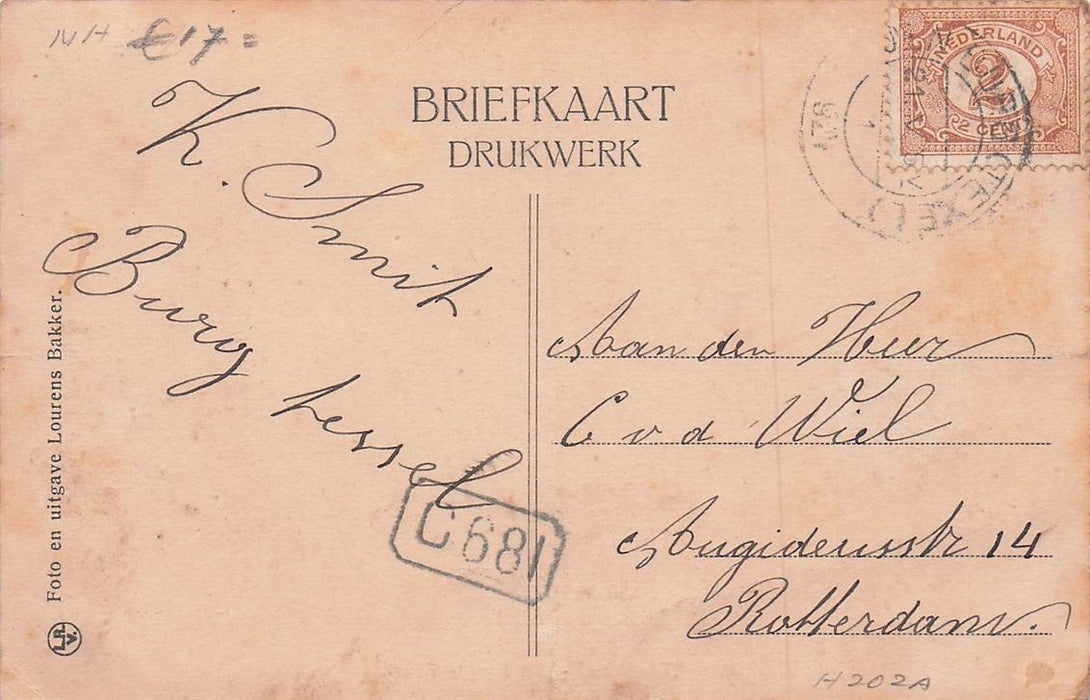 NH €17=
BRIEFKAART
DRUKWERK
NEDERLAND
2
2 CENT
K. Smit
Burg
tessel
Aan den Heer
C v d Wiel
Aegideusstr 14
Rotterdam.
C 681
Foto en uitgave Lourens Bakker.
L.R.
V.
H202A